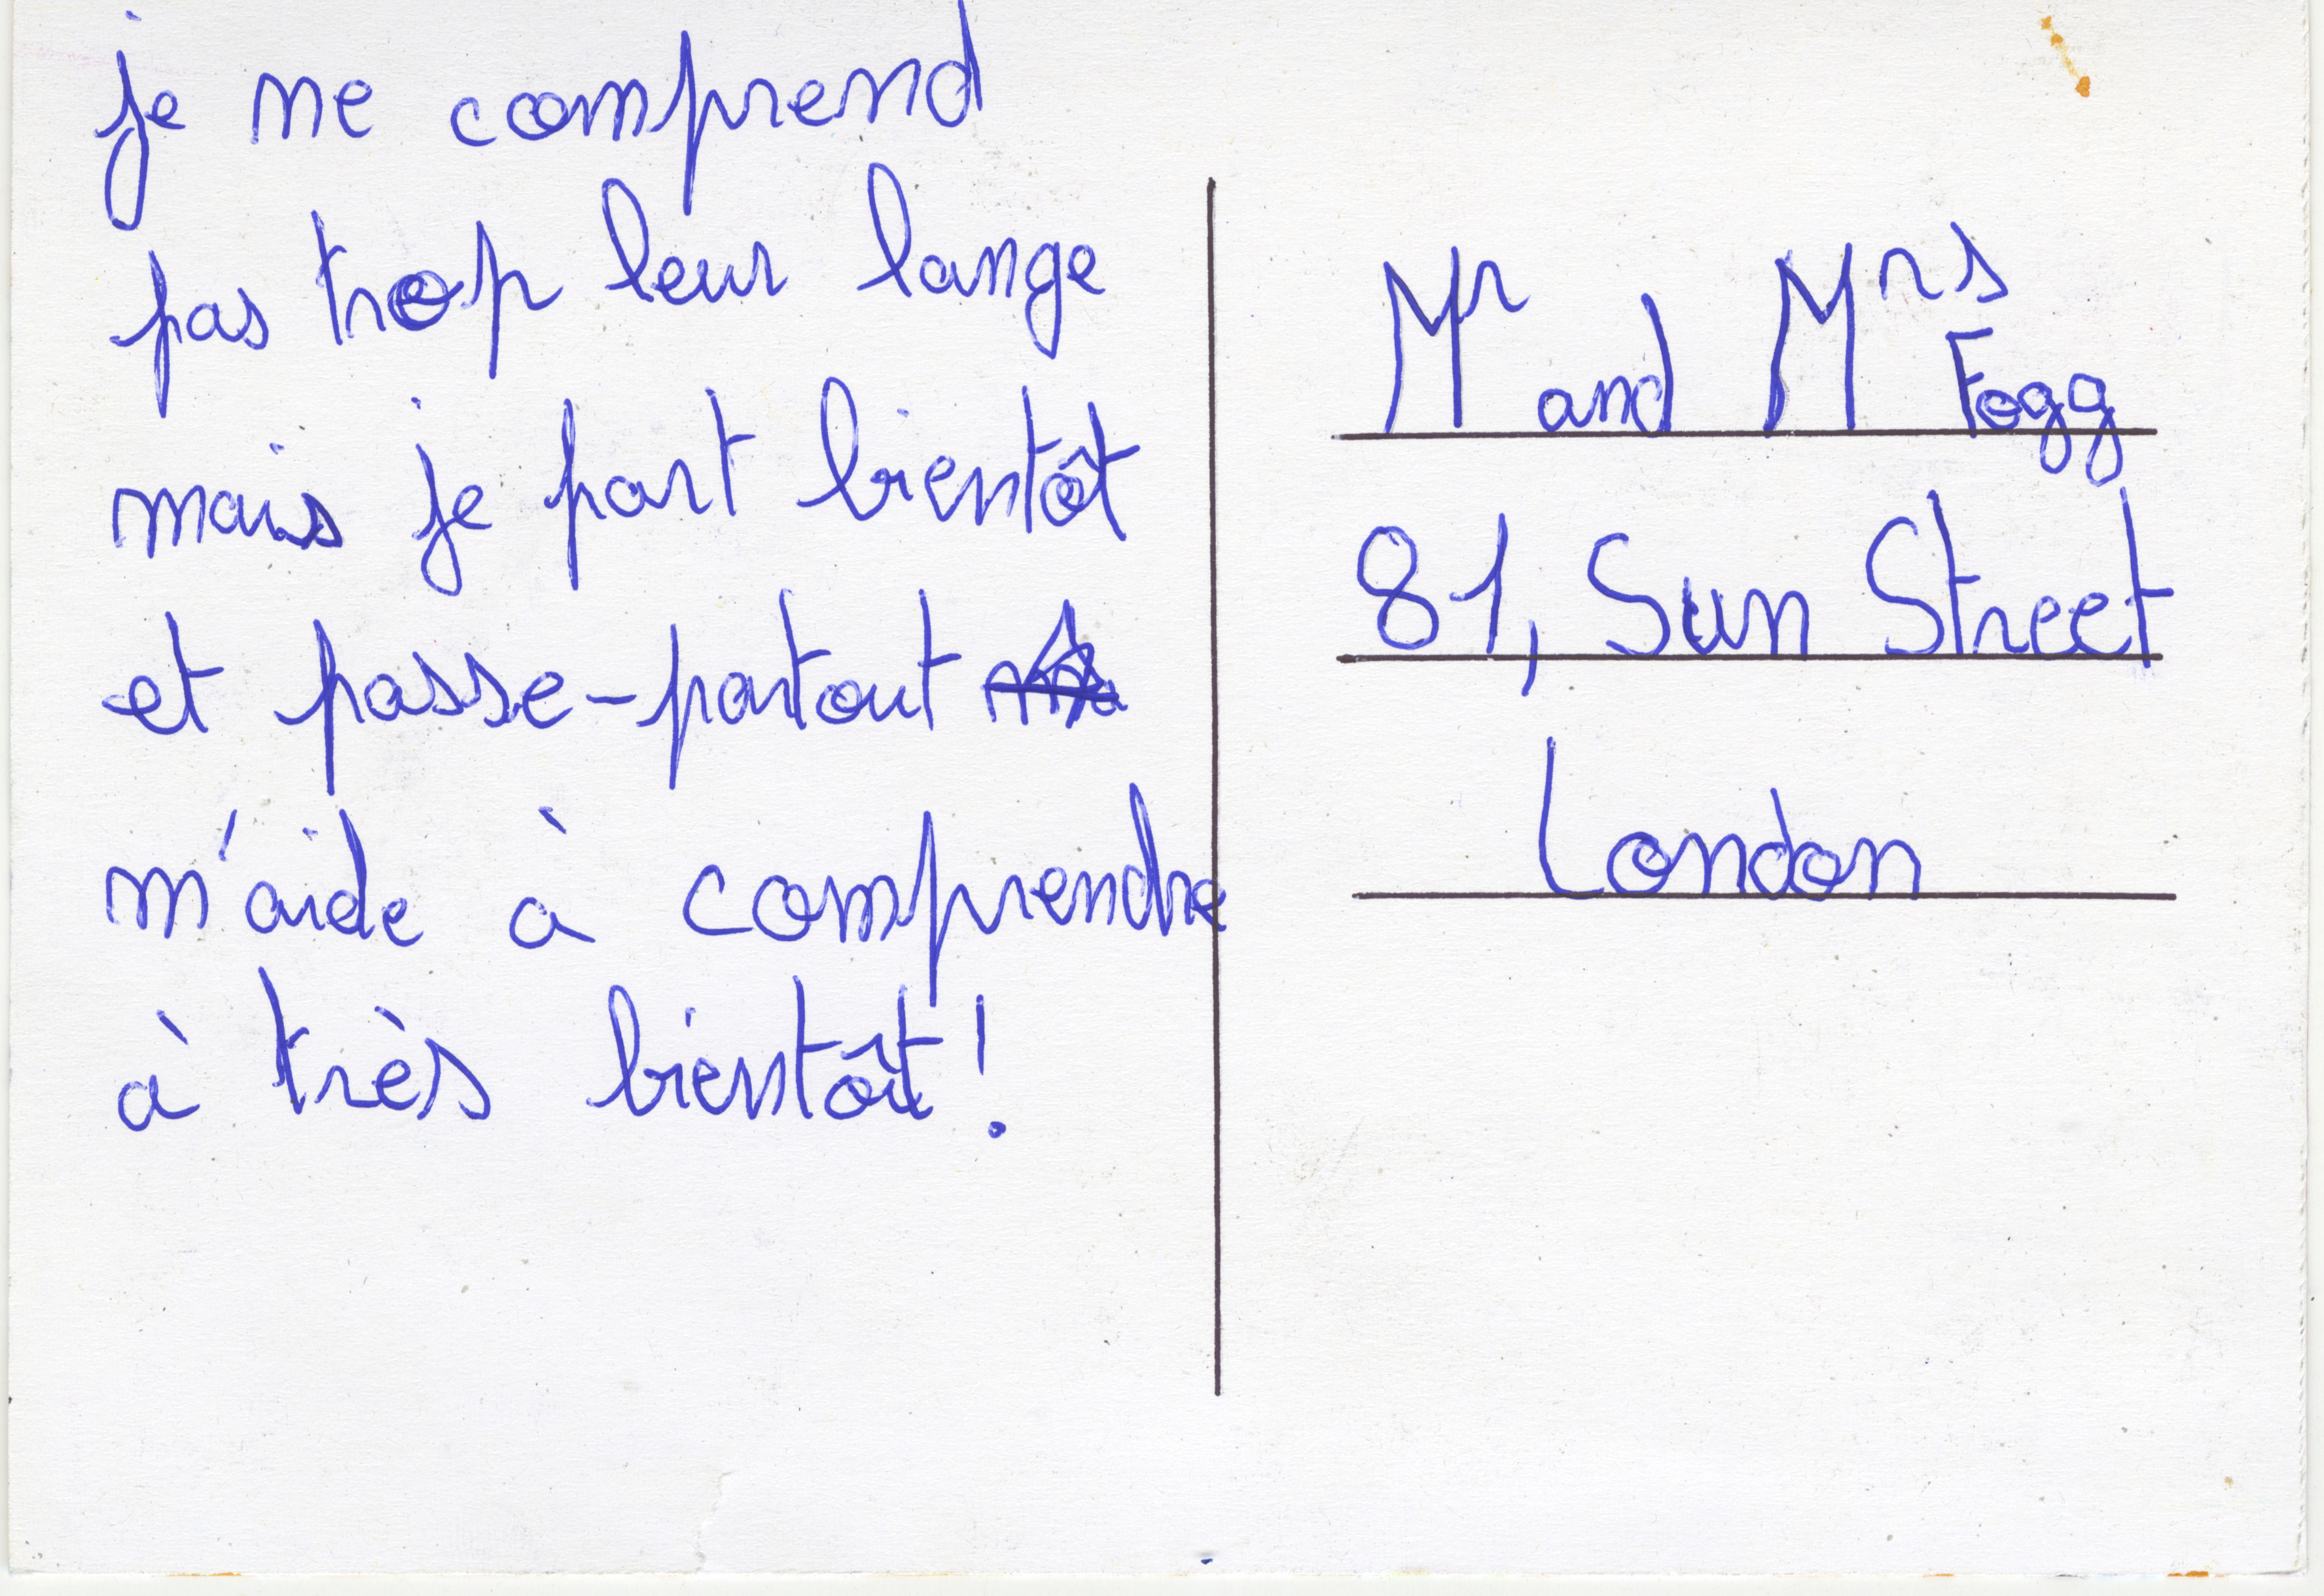 je ne comprend
pas trop leur lange
mais je part bientôt
et passe-partout
m'aide à comprendre
à très bientôt !
Mr and Mrs Fogg
81, Sun Street
London